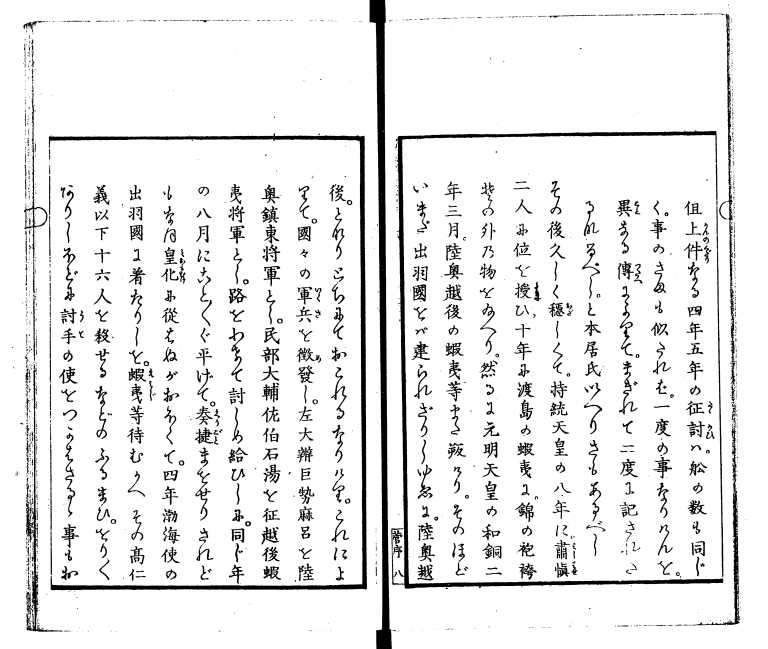 但上件なる四年五年の征討ハ舩の数も同じ
く。事のさまも似たれば。一度の事なりけんを。
異なる傳によりて。まぎれて二度に記された
るなるべし。と本居氏いへりさもあるべし
その後久しく穏しくて。持統天皇の八年に肅愼
二人に位を授ひ十年に渡島の蝦夷に。錦の袍袴
その外の物をたまへり。然るに元明天皇の和銅二
年三月。陸奥越後の蝦夷等また叛けり。そのほど
いまだ出羽國をバ建られざりしゆゑに。陸奥越
管序 八
後。とれりこちにておこれるなりけり。これによ
りて。國々の軍兵を徴發し。左大辨巨勢麻呂を陸
奥鎮東將軍とし。民部大輔佐伯石湯を征越後蝦
夷將軍とし。路をわきて討しめ給ひしに。同じ年
の八月にことごとく平げて。奏捷まをせりされど
もなほ皇化に從はぬがおほくて。四年渤海使の
出羽國に着たりしを。蝦夷等待むかへその髙仁
義以下十六人を殺せるなどのふるまひ。をりく
ありしほどに討手の使をつかはさるゝ事もお